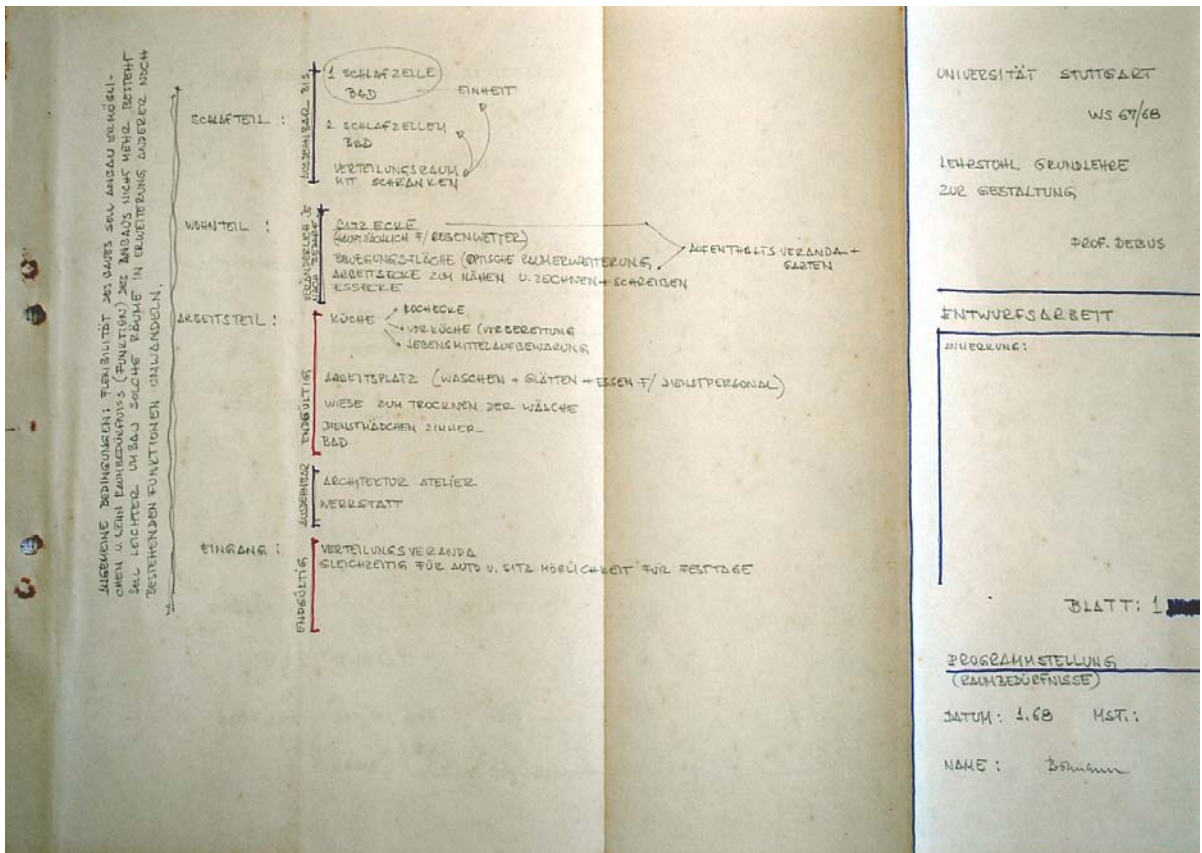 ALLGEMEINE BEDINGUNGEN: FLEXIBILITÄT DES BAUES SOLL ANBAU ERMÖGLI-
CHEN U. WENN RAUMBEDÜRFNISS (FUNKTION) DES ANBAUS NICHT MEHR BESTEHT
SOLL LEICHTER UMBAU SOLCHE RÄUME IN ERWEITERUNG ANDERER NOCH
BESTEHENDEN FUNKTIONEN UMWANDELN.
SCHLAFTEIL :
AUSDEHNBAR BIS
1 SCHLAFZELLE
BAD
EINHEIT
2 SCHLAFZELLEN
BAD
VERTEILUNGSRAUM
MIT SCHRÄNKEN
WOHNTEIL :
VERÄNDERLICH JE
NACH BEDARF
SITZ ECKE
(HAUPTSÄCHLICH F/ REGENWETTER)
BEWEGUNGSFLÄCHE (OPTISCHE RAUMERWEITERUNG
ARBEITSECKE ZUM NÄHEN U. ZECHNEN + SCHREIBEN
ESSECKE
AUFENTHALTSVERANDA +
GARTEN
ARBEITSTEIL :
ENDGÜLTIG
KÜCHE
KOCHECKE
VORKÜCHE (VORBEREITUNG
LEBENSMITTELAUFBEWARUNG
ARBEITSPLATZ (WASCHEN + GLÄTTEN + ESSEN F/ DIENSTPERSONAL)
WIESE ZUM TROCKNEN DER WÄSCHE
DIENSTMÄDCHEN ZIMMER
BAD
AUSDEHNBAR
ARCHITEKTUR ATELIER
WERKSTATT
EINGANG :
ENDGÜLTIG
VERTEILUNGSVERANDA
GLEICHZEITIG FÜR AUTO U. SITZ MÖGLICHKEIT FÜR FESTTAGE
UNIVERSITÄT STUTTGART
WS 67/68
LEHRSTUHL GRUNDLEHRE
ZUR GESTALTUNG
PROF. DEBUS
ENTWURFSARBEIT
ANMERKUNG:
BLATT: 1
PROGRAMMSTELLUNG
(RAUMBEDÜRFNISSE)
DATUM: 1.68 MST.:
NAME :